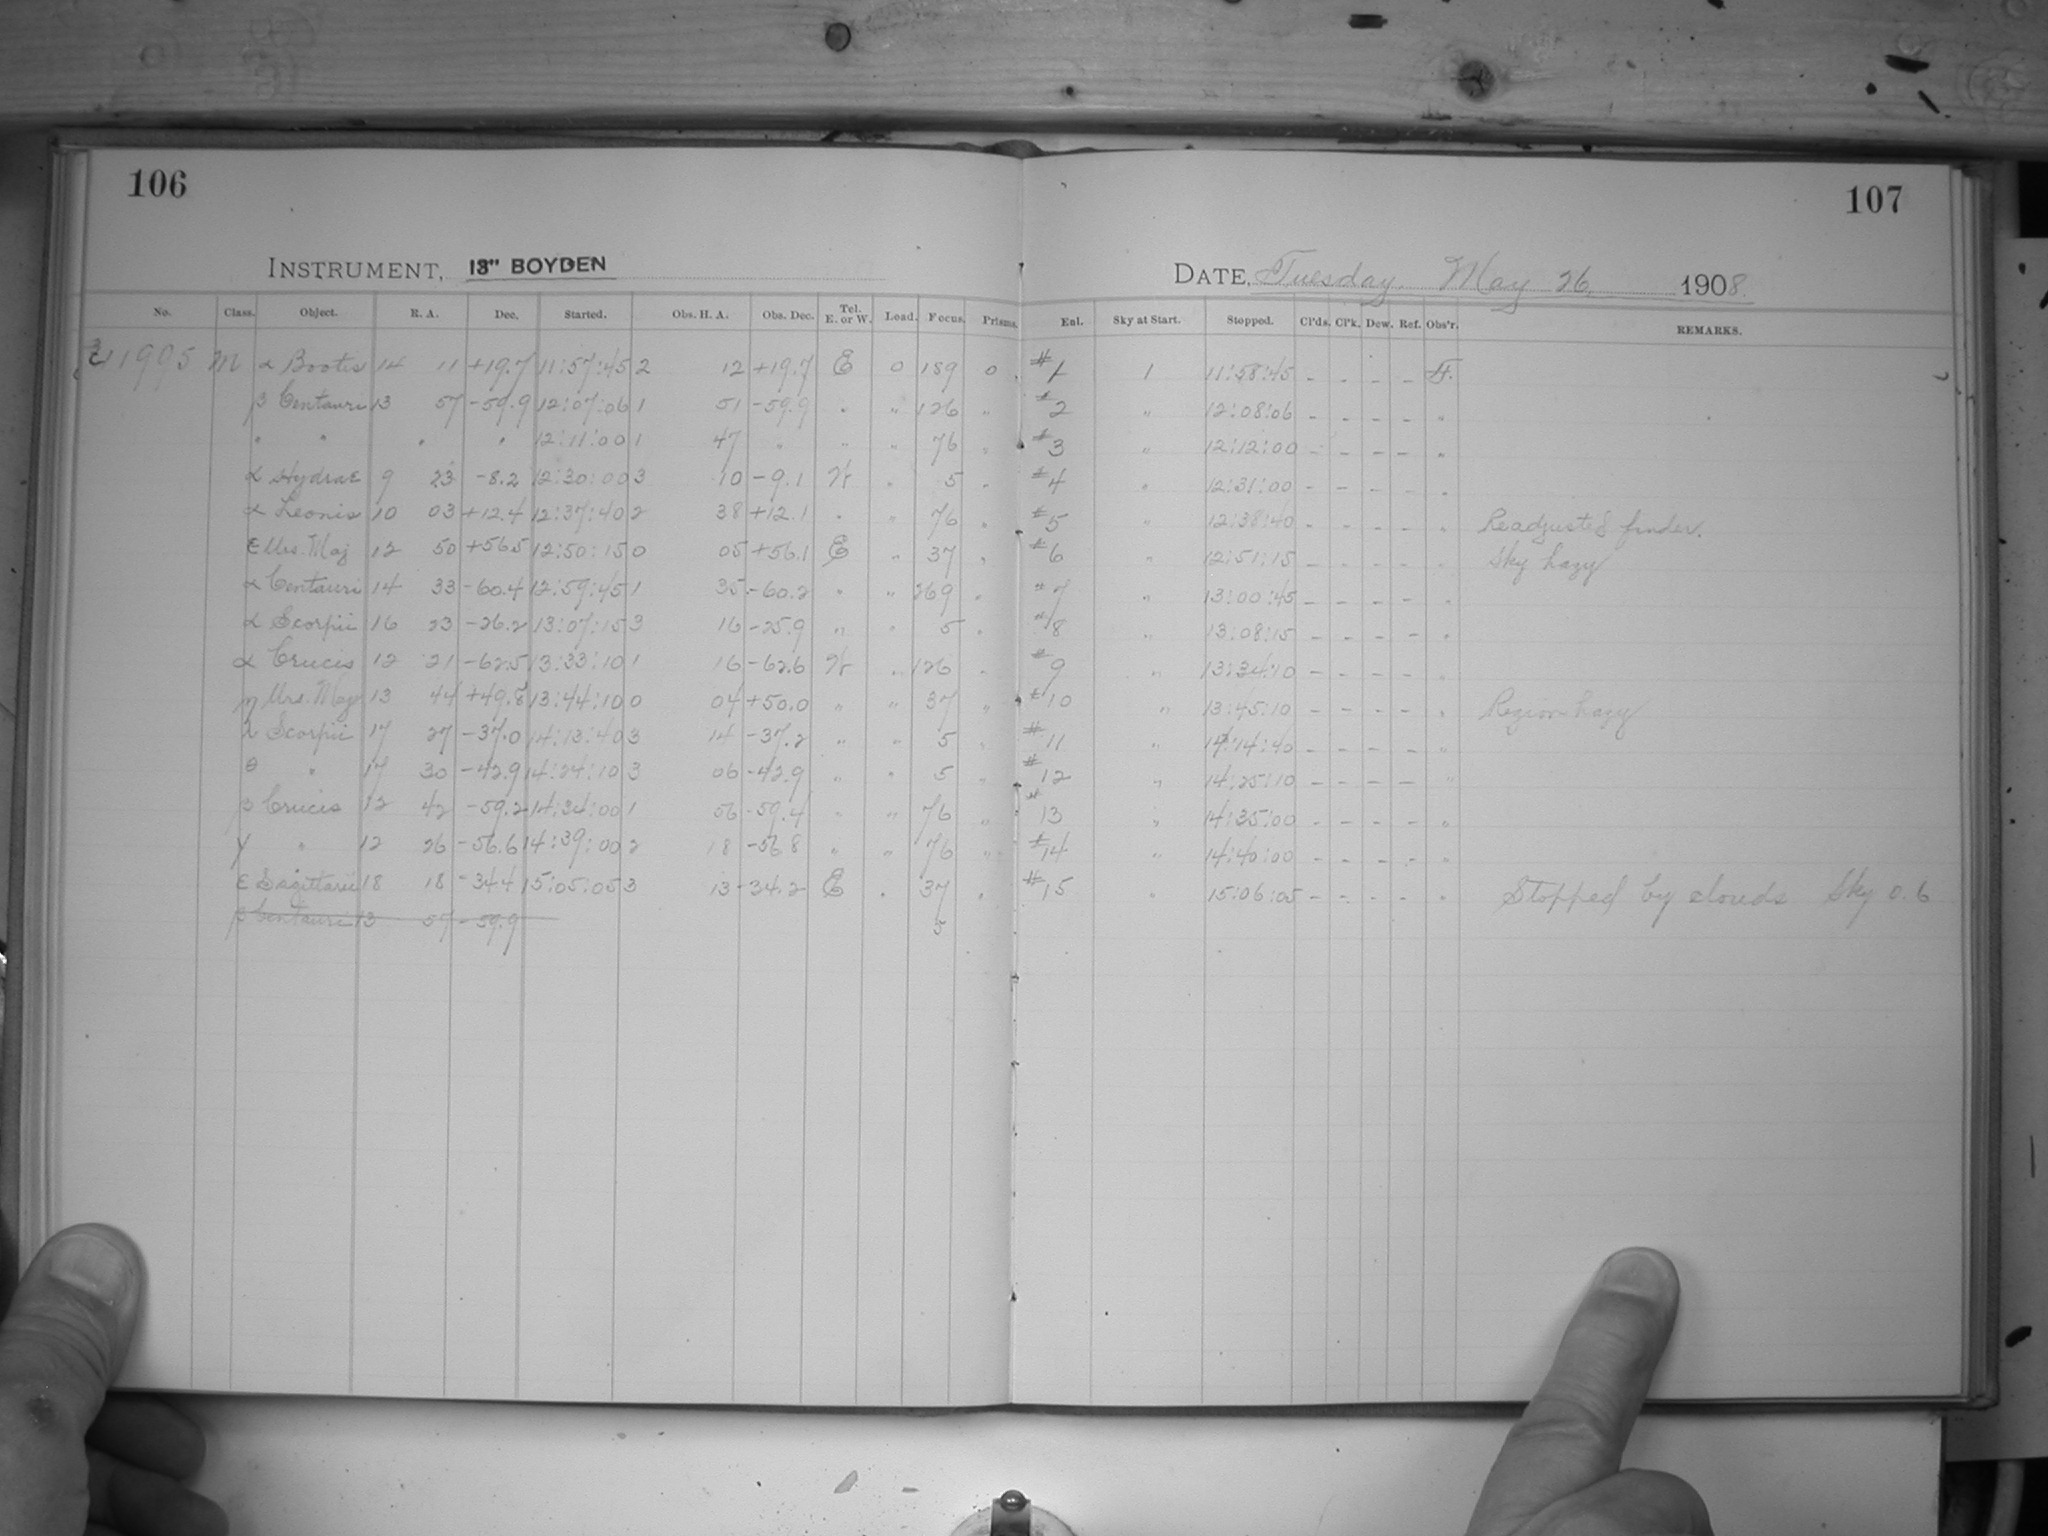 106
107
INSTRUMENT, 13" BOYDEN
DATE, Tuesday. May 26. 1908.
No. Class. Object. R. A. Dec. Started. Obs. H. A. Obs. Dec. Tel. E. or W. Lead. Focus. Prisms. Enl. Sky at Start. Stopped. Cl'ds. Cl'k. Dew. Ref. Obs'r. REMARKS.
11995 M α Bootis 14 11 +19.7 11:57:45 2 12 +19.7 E 0 189 0 #1 1 11:58:45 - - - -
β Centauri 13 57 -59.9 12:07:06 1 51 -59.9 " " 126 " #2 " 12:08:06 - - - - "
" " " " 12:11:00 1 47 " " " 76 " #3 " 12:12:00 - - - - "
α Hydrae 9 23 -8.2 12:30:00 3 10 -9.1 W " 5 " #4 " 12:31:00 - - - - "
α Leonis 10 03 +12.4 12:37:40 2 38 +12.1 " " 76 " #5 " 12:38:40 - - - - " Readjusted finder.
ε Urs. Maj 12 50 +56.5 12:50:15 0 05 +56.1 E " 37 " #6 " 12:51:15 - - - - " Sky hazy
α Centauri 14 33 -60.4 12:59:45 1 35 -60.2 " " 269 " #7 " 13:00:45 - - - - "
α Scorpii 16 23 -26.2 13:07:15 3 16 -25.9 " " 5 " #8 " 13:08:15 - - - - "
α Crucis 12 21 -62.5 13:33:10 1 16 -62.6 W " 126 " #9 " 13:34:10 - - - - "
η Urs. Maj 13 44 +49.8 13:44:10 0 04 +50.0 " " 37 " #10 " 13:45:10 - - - - " Region hazy
λ Scorpii 17 27 -37.0 14:13:40 3 14 -37.2 " " 5 " #11 " 14:14:40 - - - - "
θ " 17 30 -42.9 14:24:10 3 06 -42.9 " " 5 " #12 " 14:25:10 - - - - "
β Crucis 12 42 -59.2 14:34:00 1 56 -59.4 " " 76 " #13 " 14:35:00 - - - - "
γ " 12 26 -56.6 14:39:00 2 18 -56.8 " " 76 " #14 " 14:40:00 - - - - "
ε Sagittarii 18 18 -34.4 15:05:05 3 13 -34.2 E " 37 " #15 " 15:06:05 - - - - " Stopped by clouds Sky 0.6
β Centauri 13 57 -59.9 5